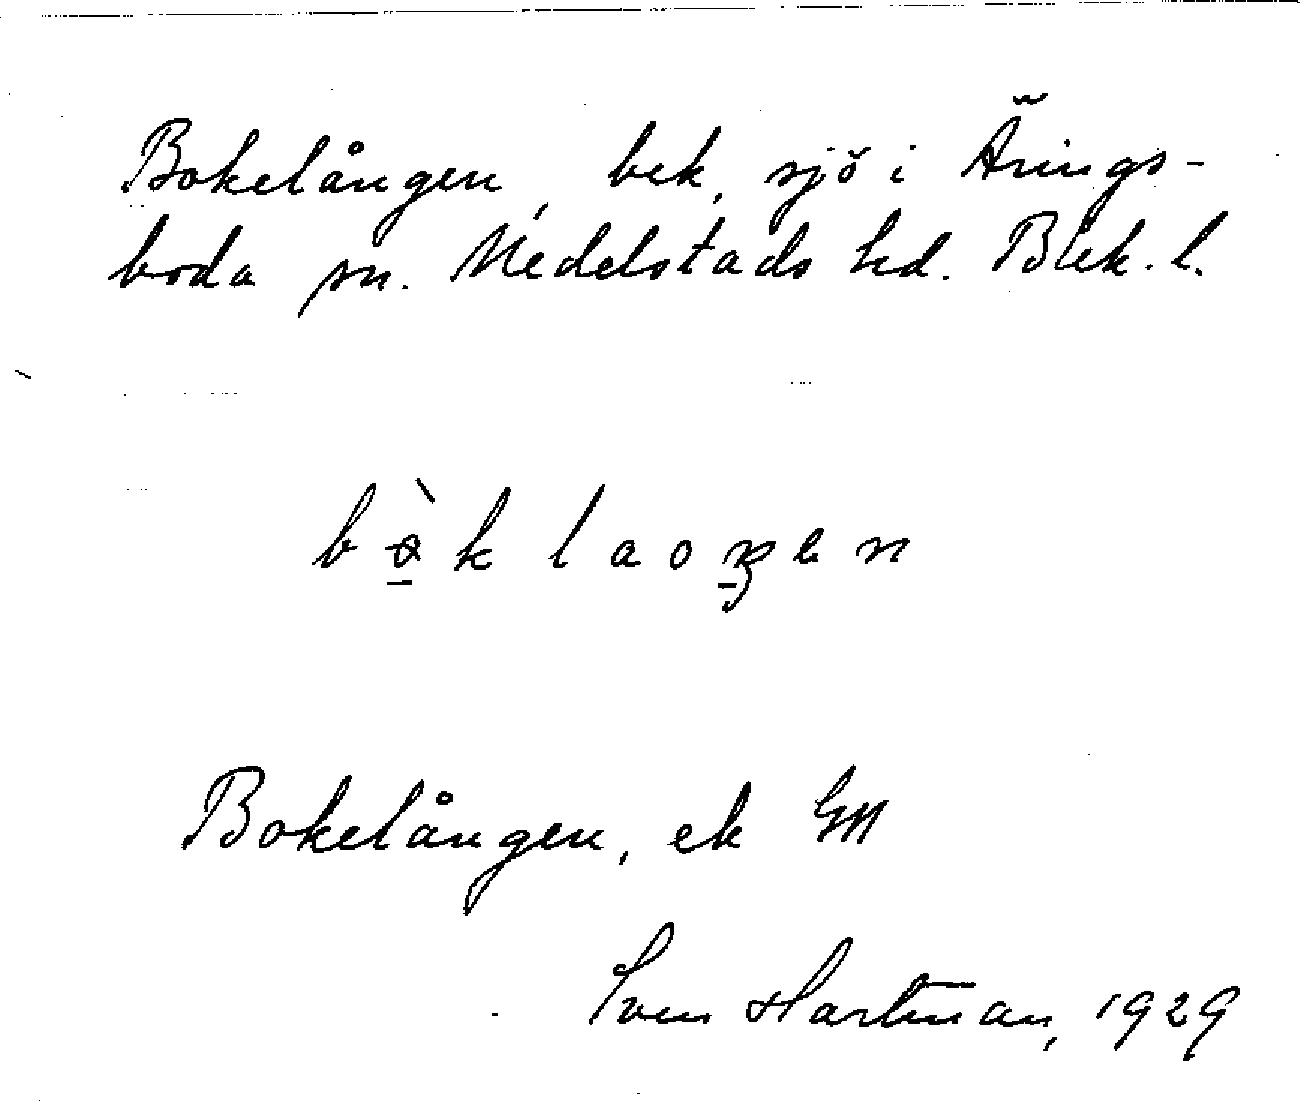 Bokelången, bek. sjö i Ärings-
boda sn. Medelstads hd. Blek. l.
bòklaoŋen
Bokelången, ek GM
Sven Hartman, 1929